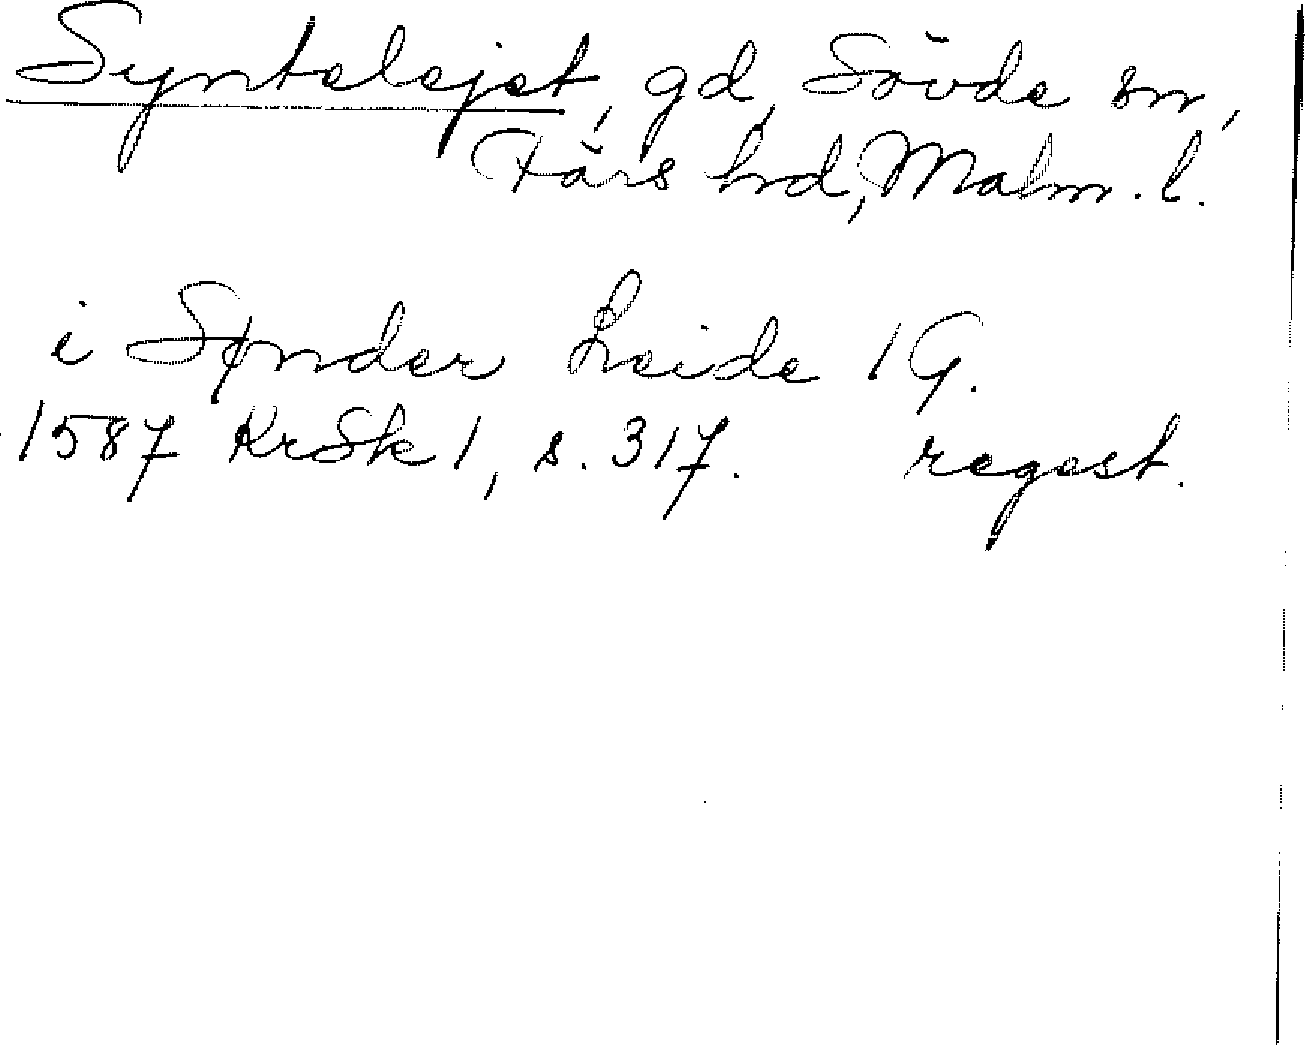 Syntelejet, gd, Sövde sn,
Färs hd, Malm. l.
i Sønder Leide 1 G.
1587 KrSk 1, s. 317. regest.